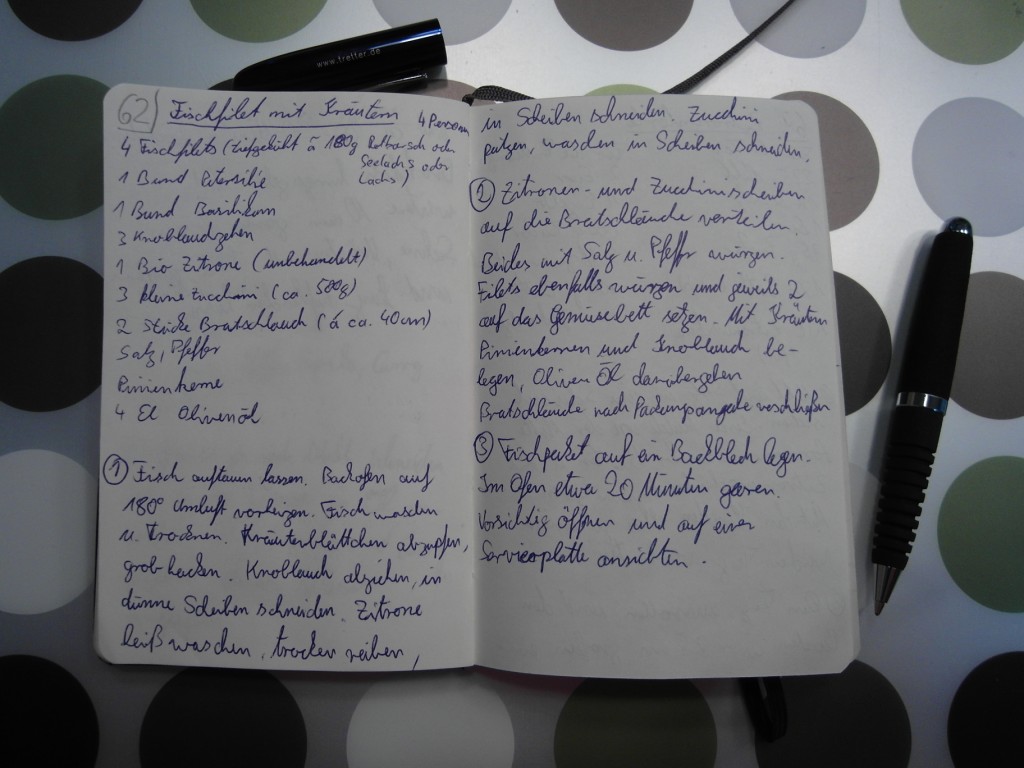 www.tretter.de
62) Fischfilet mit Kräutern 4 Personen
4 Fischfilets (tiefgekühlt à 180g Rotbarsch oder
Seelachs oder
Lachs)
1 Bund Petersilie
1 Bund Basilikum
3 Knoblauchzehen
1 Bio Zitrone (unbehandelt)
3 kleine Zucchini (ca. 500g)
2 Stücke Bratschlauch (à ca. 40cm)
Salz, Pfeffer
Pinienkerne
4 El Olivenöl
① Fisch auftauen lassen. Backofen auf
180° Umluft vorheizen. Fisch waschen
u. trocknen. Kräuterblättchen abzupfen,
grob hacken. Knoblauch abziehen, in
dünne Scheiben schneiden. Zitrone
heiß waschen, trocken reiben,
in Scheiben schneiden. Zucchini
putzen, waschen in Scheiben schneiden.
② Zitronen- und Zucchinischeiben
auf die Bratschläuche verteilen.
Beides mit Salz u. Pfeffer würzen.
Filets ebenfalls würzen und jeweils 2
auf das Gemüsebett setzen. Mit Kräutern
Pinienkernen und Knoblauch be-
legen, Oliven Öl darübergeben
Bratschläuche nach Packungsangabe verschließen
③ Fischpaket auf ein Backblech legen.
Im Ofen etwa 20 Minuten garen.
Vorsichtig öffnen und auf einer
Servierplatte anrichten.